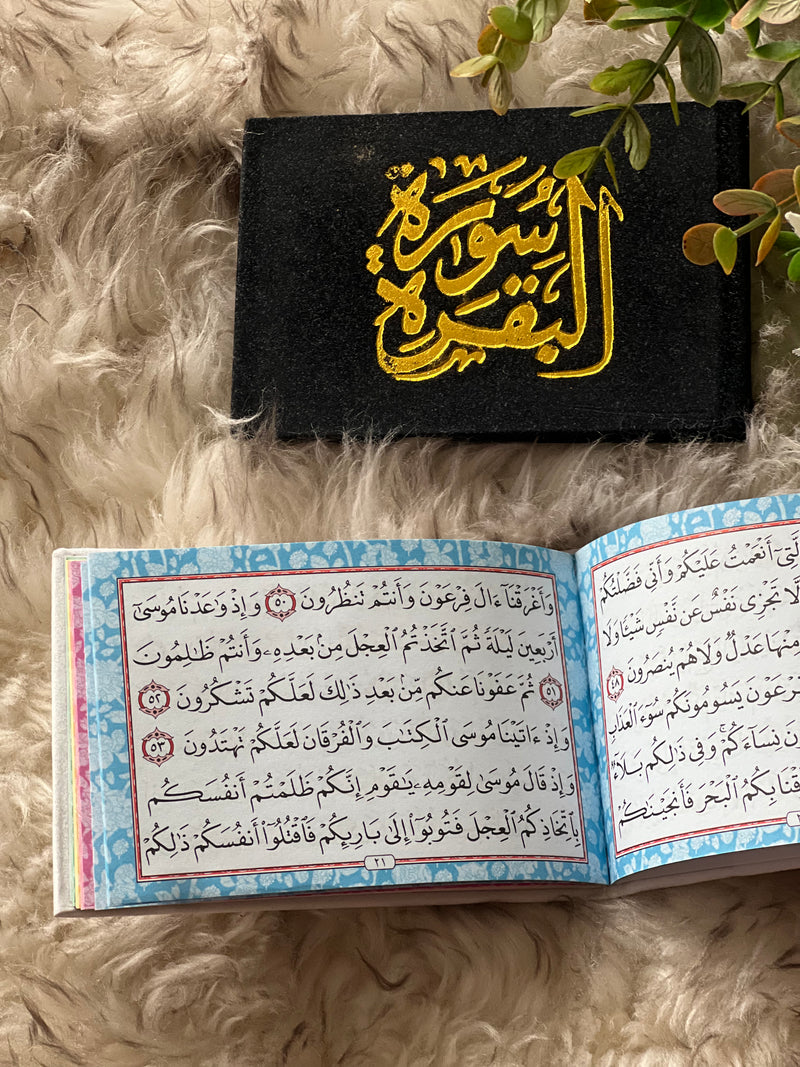 سُورَة
البَقَرَة
ٱلَّتِىٓ أَنْعَمْتُ عَلَيْكُمْ وَأَنِّى فَضَّلْتُكُمْ
لَّا تَجْزِى نَفْسٌ عَن نَّفْسٍ شَيْـًٔا وَلَا
مِنْهَا عَدْلٌ وَلَا هُمْ يُنصَرُونَ ٤٨
فِرْعَوْنَ يَسُومُونَكُمْ سُوٓءَ ٱلْعَذَابِ
نِسَآءَكُمْ ۚ وَفِى ذَٰلِكُم بَلَآءٌ
فَرَقْنَا بِكُمُ ٱلْبَحْرَ فَأَنجَيْنَٰكُمْ
وَأَغْرَقْنَآ ءَالَ فِرْعَوْنَ وَأَنتُمْ تَنظُرُونَ ٥٠ وَإِذْ وَٰعَدْنَا مُوسَىٰٓ
أَرْبَعِينَ لَيْلَةً ثُمَّ ٱتَّخَذْتُمُ ٱلْعِجْلَ مِنۢ بَعْدِهِۦ وَأَنتُمْ ظَٰلِمُونَ
٥١ ثُمَّ عَفَوْنَا عَنكُم مِّنۢ بَعْدِ ذَٰلِكَ لَعَلَّكُمْ تَشْكُرُونَ ٥٢
وَإِذْ ءَاتَيْنَا مُوسَى ٱلْكِتَٰبَ وَٱلْفُرْقَانَ لَعَلَّكُمْ تَهْتَدُونَ ٥٣
وَإِذْ قَالَ مُوسَىٰ لِقَوْمِهِۦ يَٰقَوْمِ إِنَّكُمْ ظَلَمْتُمْ أَنفُسَكُم
بِٱتِّخَاذِكُمُ ٱلْعِجْلَ فَتُوبُوٓا۟ إِلَىٰ بَارِئِكُمْ فَٱقْتُلُوٓا۟ أَنفُسَكُمْ ذَٰلِكُمْ
٢١